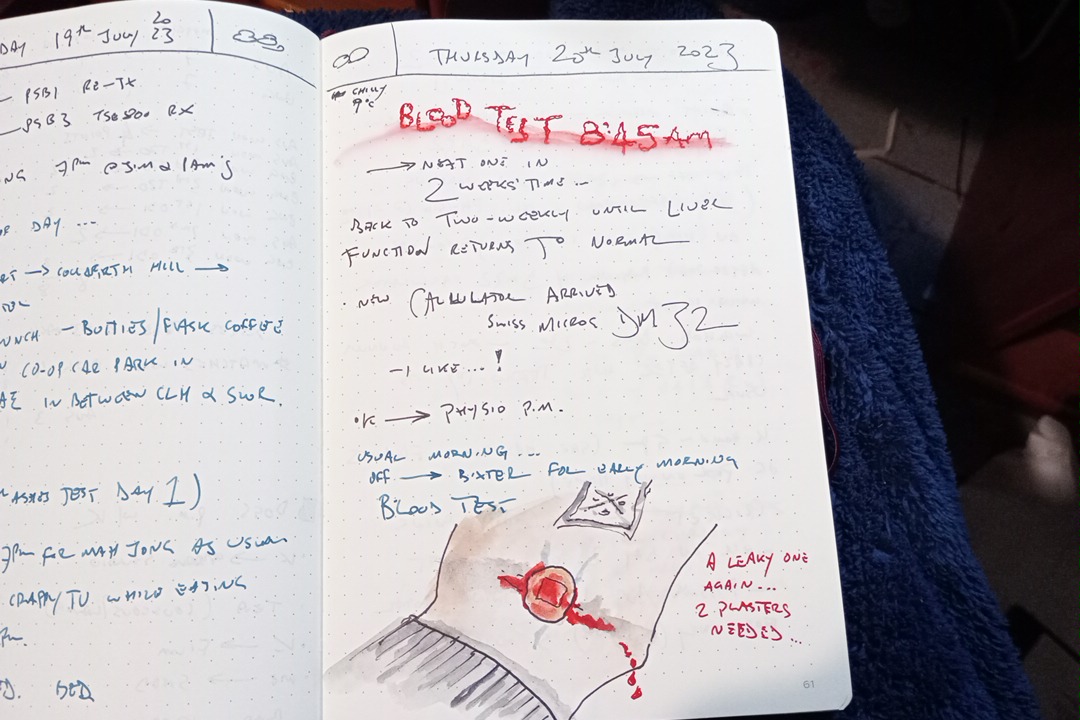 DAY 19th JULY 2023
— PSB1 RE-TX
— PSB3 TS2500 RX
NG 7PM @ JIM & PAM'S
DAY ...
→ COLLAFIRTH HILL →
— BUTTIES/FLASK COFFEE
CO-OP CAR PARK IN
IN BETWEEN CLH & SWR.
ASHES TEST DAY 1)
7PM FOR MAH JONG AS USUAL
CRAPPY TV WHILE EATING
PM.
BED
THURSDAY 20th JULY 2023
CHILLY
9°C
BLOOD TEST 8:45AM
→ NEXT ONE IN
2 WEEKS' TIME...
BACK TO TWO-WEEKLY UNTIL LIVER
FUNCTION RETURNS TO NORMAL
· NEW CALCULATOR ARRIVED
SWISS MICROS DM32
— I LIKE...!
· K → PHYSIO P.M.
USUAL MORNING...
OFF → BIXTER FOR EARLY MORNING
BLOOD TEST
A LEAKY ONE
AGAIN...
2 PLASTERS
NEEDED...
61